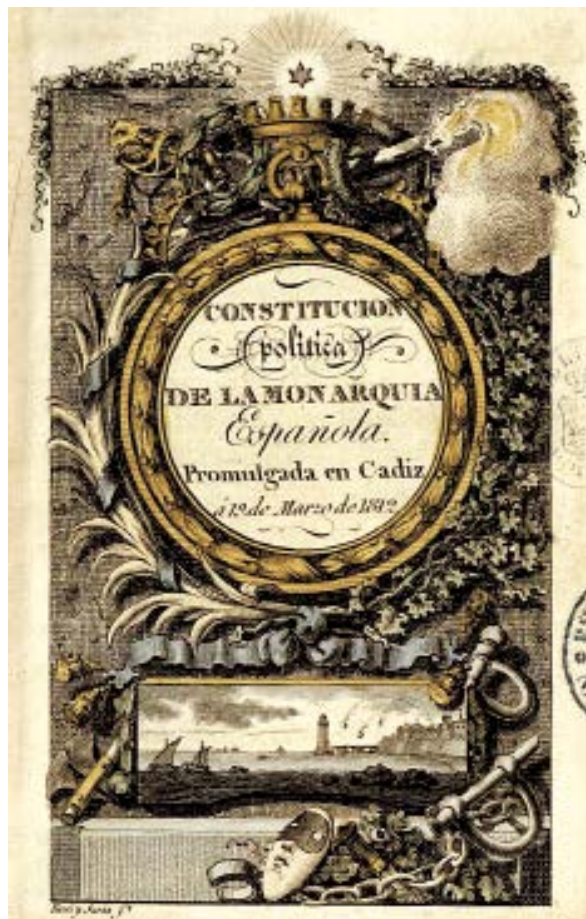 CONSTITUCION
politica
DE LA MONARQUIA
Española.
Promulgada en Cadiz
á 19 de Marzo de 1812